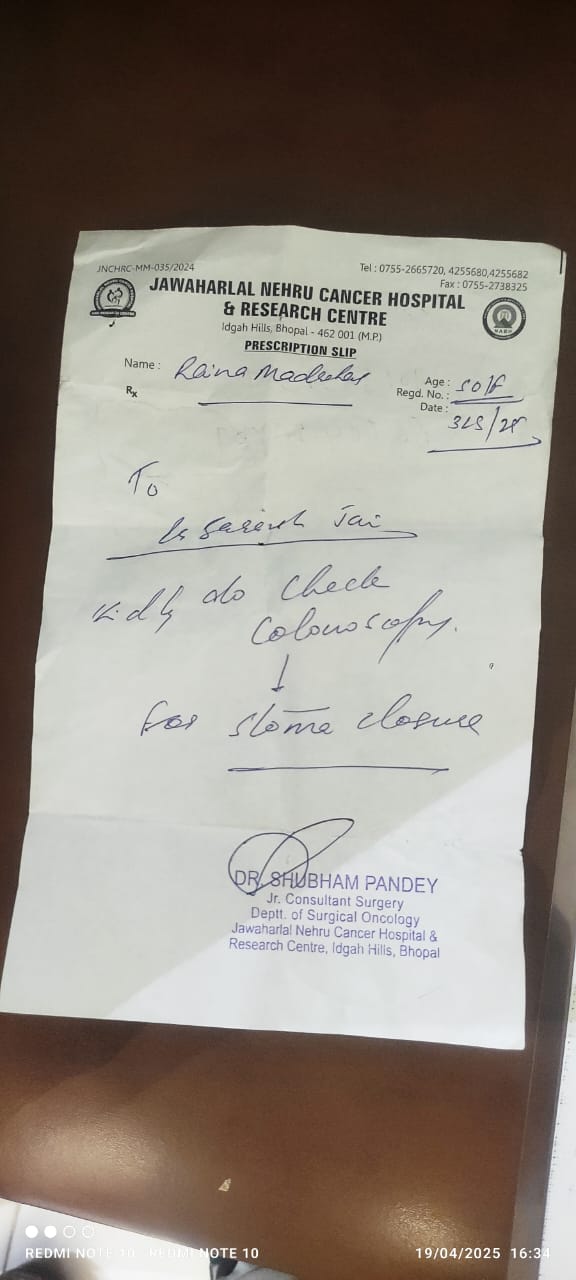 JNCHRC-MM-035/2024
Tel : 0755-2665720, 4255680,4255682
Fax : 0755-2738325
JAWAHARLAL NEHRU CANCER HOSPITAL
& RESEARCH CENTRE
Idgah Hills, Bhopal - 462 001 (M.P.)
PRESCRIPTION SLIP
Name : Raina
Age : 50/F
Regd. No. :
Rx
Date :
To
Dr Jai
Kidly do Check
Colonoscopy.
↓
For stoma closure
DR. SHUBHAM PANDEY
Jr. Consultant Surgery
Deptt. of Surgical Oncology
Jawaharlal Nehru Cancer Hospital &
Research Centre, Idgah Hills, Bhopal
NABH
REDMI NOTE 10 REDMI NOTE 10
19/04/2025 16:34